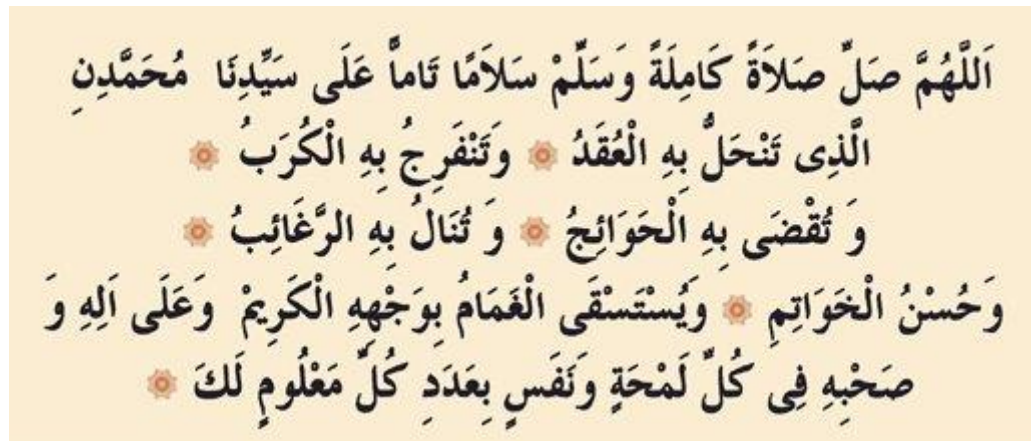 اَللَّهُمَّ صَلِّ صَلاَةً كَامِلَةً وَسَلِّمْ سَلاَمًا تَاماًّ عَلَى سَيِّدِنَا مُحَمَّدِنِ
الَّذِى تَنْحَلُّ بِهِ الْعُقَدُ ۞ وَتَنْفَرِجُ بِهِ الْكُرَبُ ۞
وَ تُقْضَى بِهِ الْحَوَائِجُ ۞ وَ تُنَالُ بِهِ الرَّغَائِبُ ۞
وَحُسْنُ الْخَوَاتِمِ ۞ وَيُسْتَسْقَى الْغَمَامُ بِوَجْهِهِ الْكَرِيمْ وَعَلَى اَلِهِ وَ
صَحْبِهِ فِى كُلِّ لَمْحَةٍ وَنَفَسٍ بِعَدَدِ كُلِّ مَعْلُومٍ لَكَ ۞